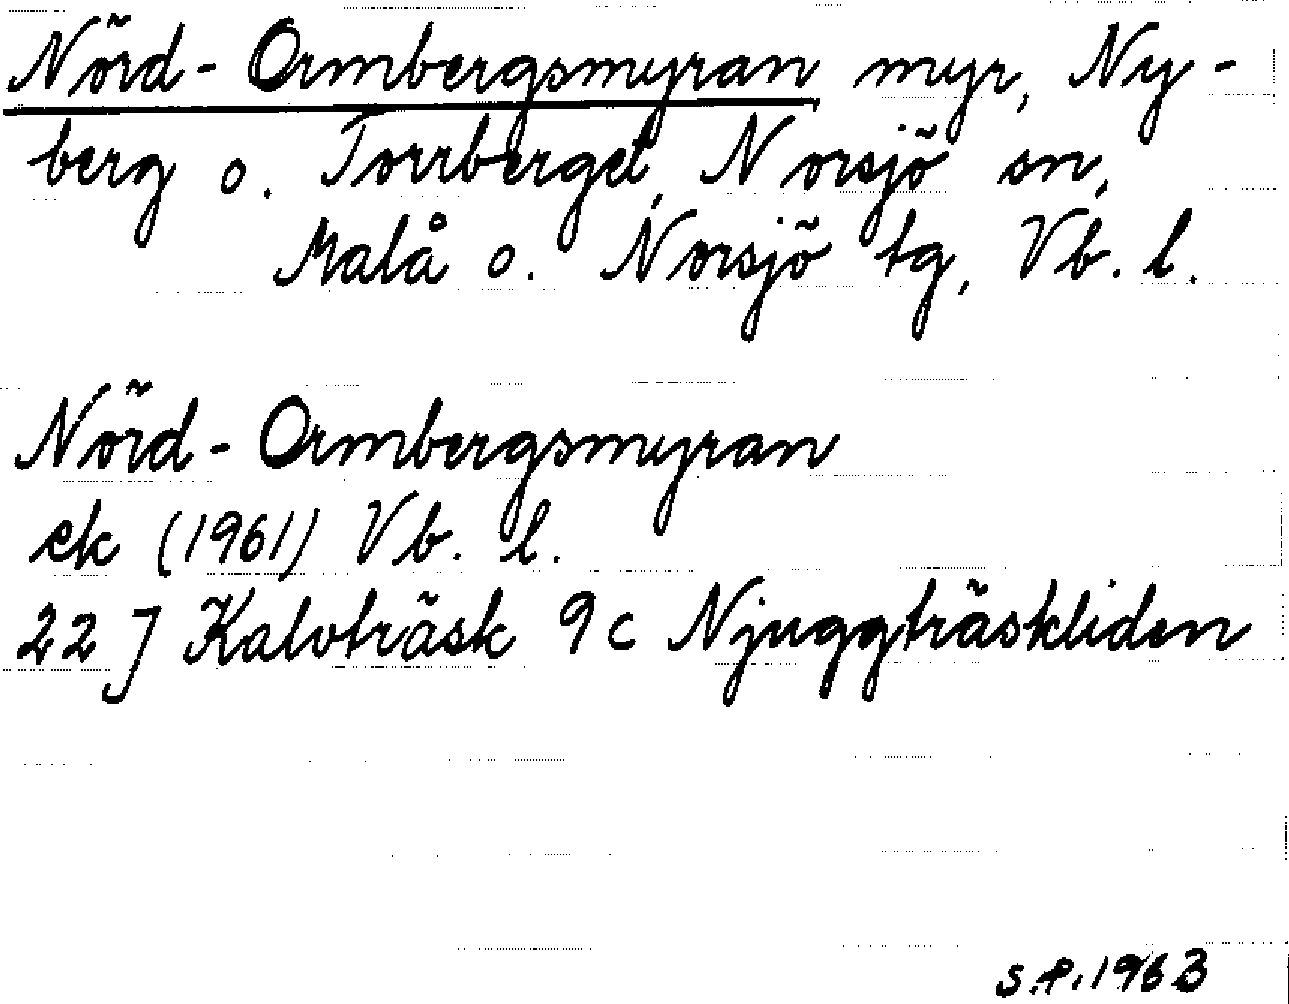 Nörd-Ormbergsmyran myr, Ny-
berg o. Torrberget, Norsjö sn,
Malå o. Norsjö tg, Vb. l.
Nörd-Ormbergsmyran
ek (1961) Vb. l.
22 J Kalvträsk 9c Njuggträskliden
S.P. 1963